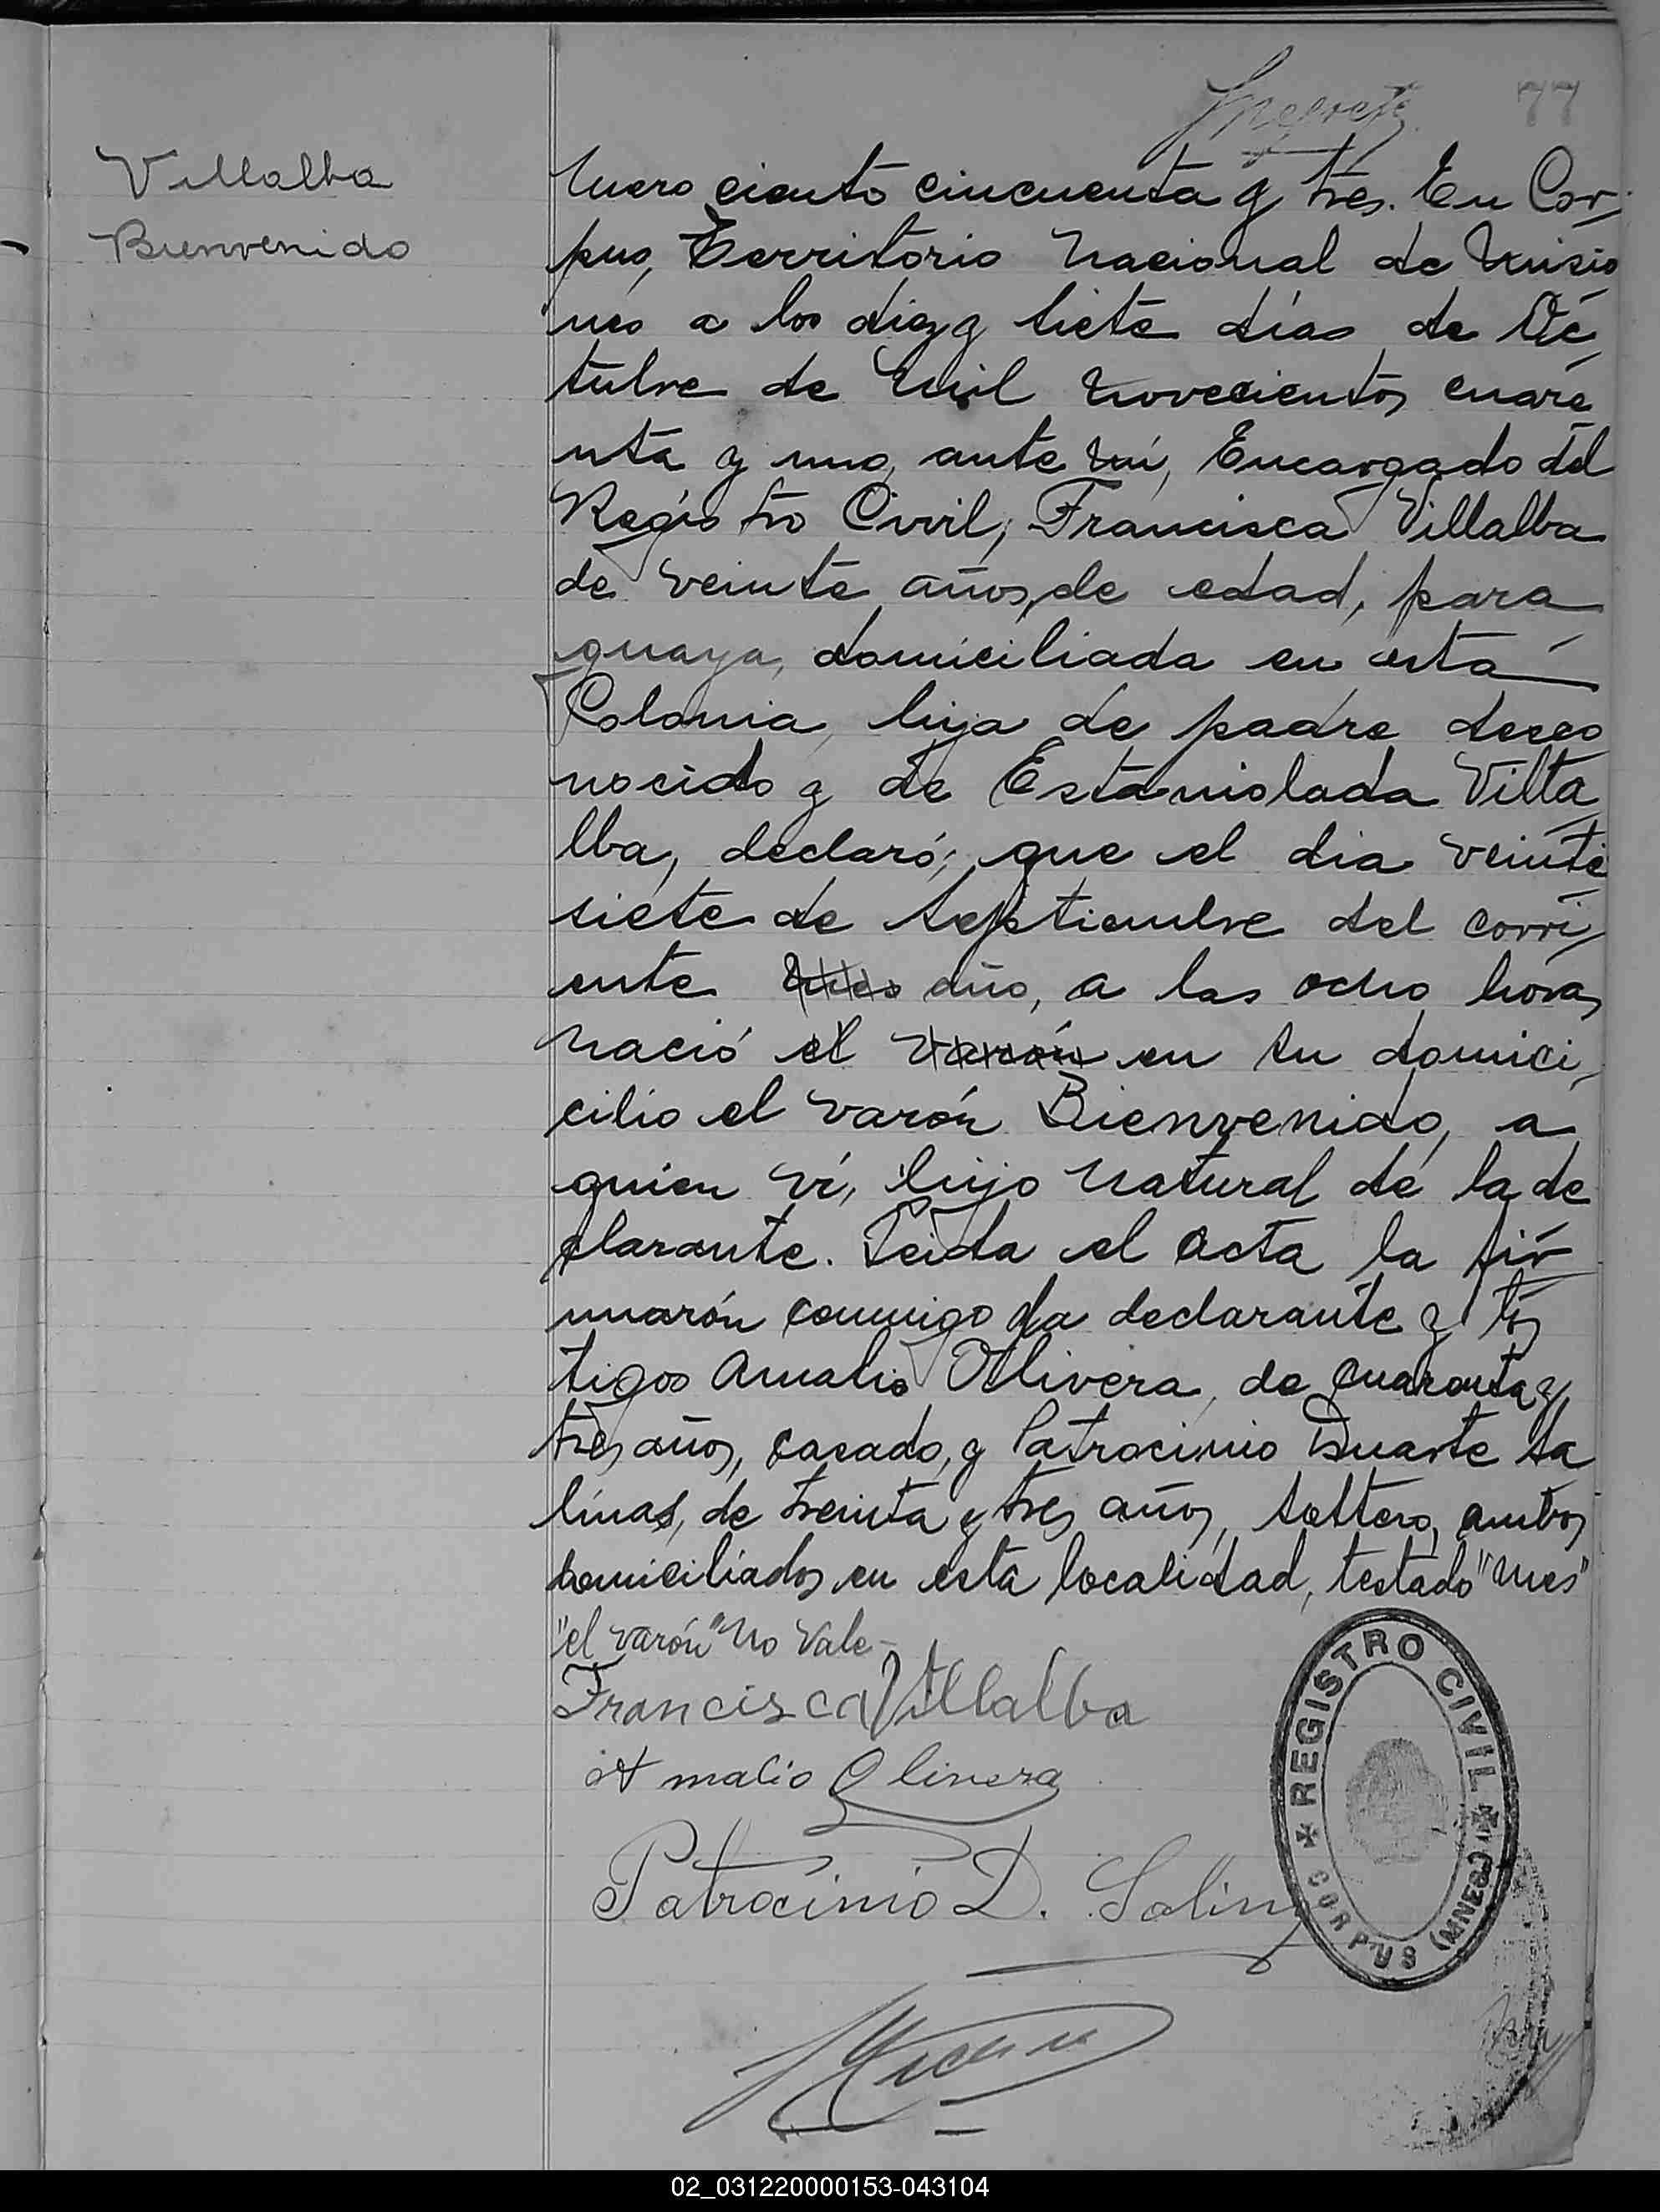 77
Villalba
Bienvenido
mero ciento cincuenta y tres. En Cor
pus, Territorio Nacional de Misio
nes a los diez y siete días de Oc
tubre de mil novecientos cuare
nta y uno, ante mí, Encargado del
Registro Civil, Francisca Villalba
de veinte años, de edad, para
guaya, domiciliada en esta
Colonia, hija de padre desco
nocido y de Estanislada Villa
lba, declaró; que el dia veinte
siete de Septiembre del corri
ente mes año, a las ocho horas
nació el varón en su domici
cilio el varón Bienvenido, a
quien ví, hijo natural de la de
clarante. Leida el acta la fir
marón conmigo la declarante y tes
tigos Amalio Ollivera, de cuarenta y
tres años, casado, y Patrocinio Duarte Sa
linas, de treinta y tres años, soltero, ambos
domiciliados en esta localidad, testado "mes"
"el varón" No Vale-
Francisca Villalba
Amalio Olivera
Patrocinio D. Salinas
REGISTRO CIVIL
CORPUS (MNES)
02_031220000153-043104